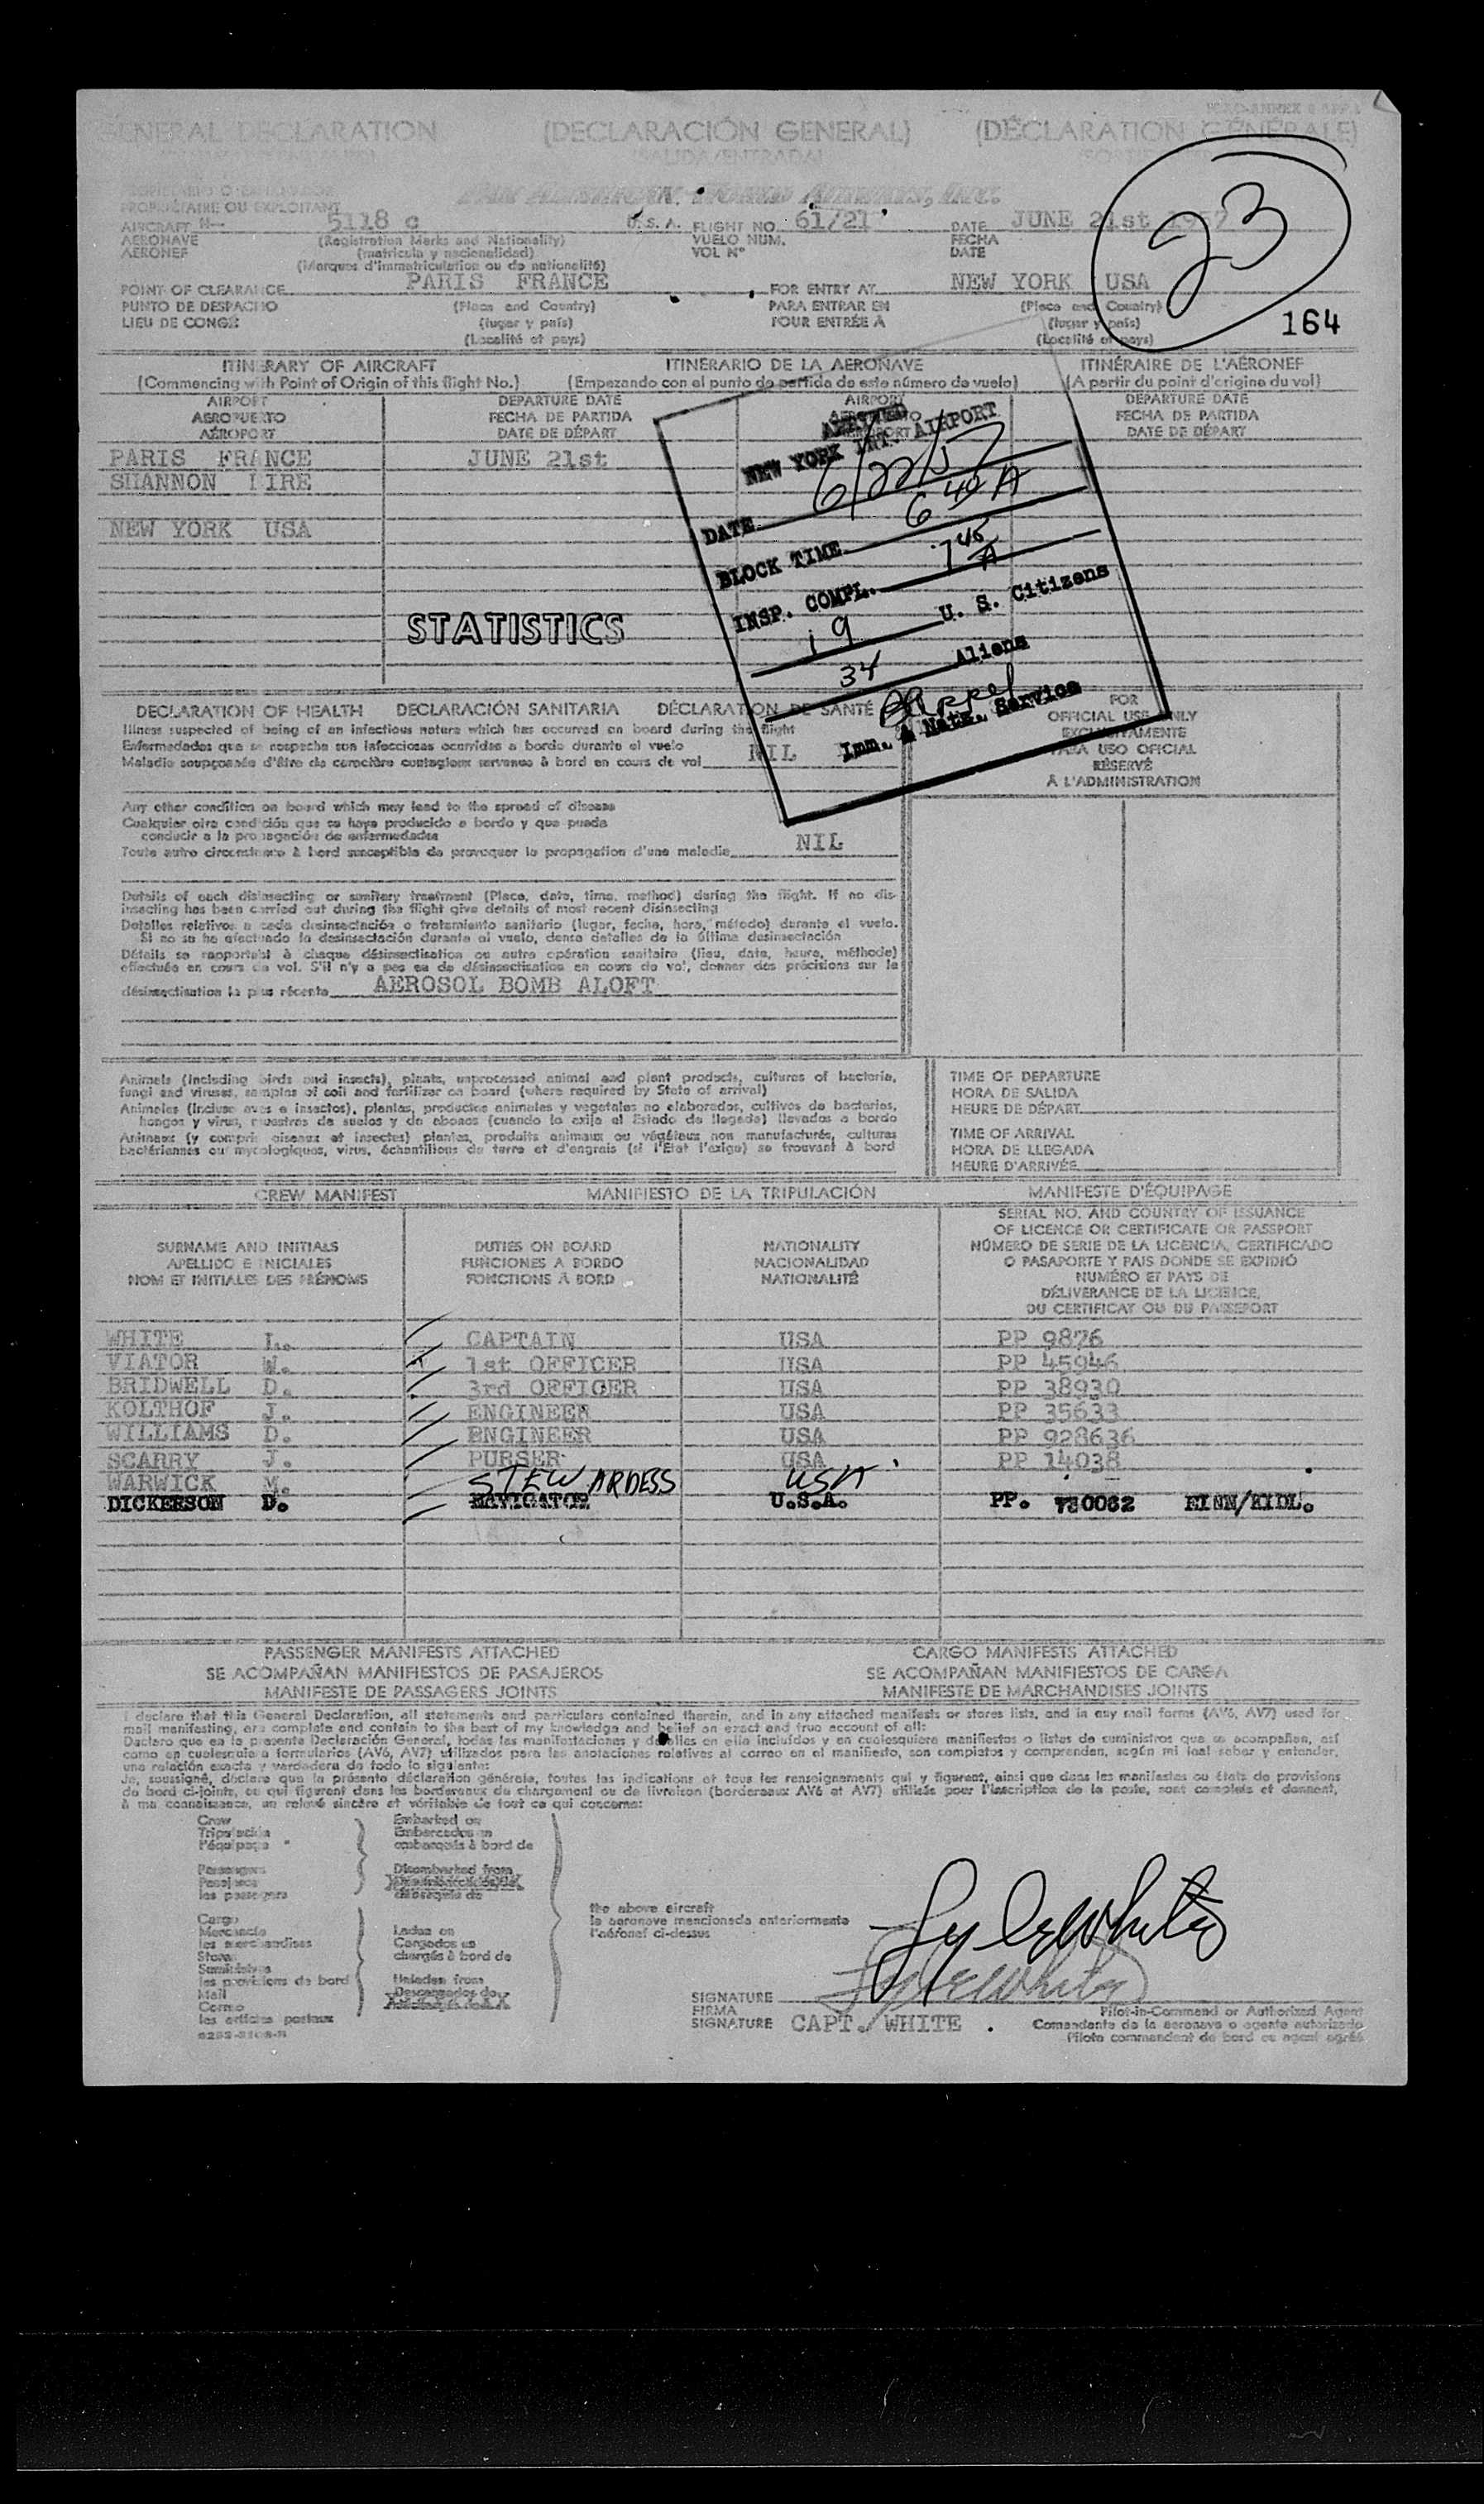 GENERAL DECLARATION (DECLARACIÓN GENERAL) (DÉCLARATION GÉNÉRALE)
PROPRIÉTAIRE OU EXPLOITANT
PAN AMERICAN WORLD AIRWAYS, INC.
AIRCRAFT N- 5118 c U.S.A. FLIGHT NO. 61/21 DATE JUNE 21st 1957
AERONAVE (Registration Marks and Nationality) VUELO NUM. FECHA
AÉRONEF (matrícula y nacionalidad) VOL Nº DATE
(Marques d'immatriculation ou de nationalité)
23
POINT OF CLEARANCE PARIS FRANCE FOR ENTRY AT NEW YORK USA
PUNTO DE DESPACHO (Place and Country) PARA ENTRAR EN (Place and Country)
LIEU DE CONGÉ (lugar y país) POUR ENTRÉE À (lugar y país)
(Localité et pays) (Localité et pays)
164
ITINERARY OF AIRCRAFT ITINERARIO DE LA AERONAVE ITINÉRAIRE DE L'AÉRONEF
(Commencing with Point of Origin of this flight No.) (Empezando con el punto de partida de este número de vuelo) (A partir du point d'origine du vol)
AIRPORT DEPARTURE DATE AIRPORT DEPARTURE DATE
AEROPUERTO FECHA DE PARTIDA FECHA DE PARTIDA
AÉROPORT DATE DE DÉPART DATE DE DÉPART
PARIS FRANCE JUNE 21st
SHANNON EIRE
NEW YORK USA
STATISTICS
ARRIVED
NEW YORK INT. AIRPORT
DATE 6/22/57
BLOCK TIME 6 40 A
INSP. COMPL. 7 45 A
19 U. S. Citizens
34 Aliens
Imm. & Natz. Service
DECLARATION OF HEALTH DECLARACIÓN SANITARIA DÉCLARATION DE SANTÉ
Illness suspected of being of an infectious nature which has occurred on board during the flight
Enfermedades que se sospecha son infecciosas ocurridas a bordo durante el vuelo
Maladie soupçonnée d'être de caractère contagieux survenue à bord en cours de vol NIL
FOR
OFFICIAL USE ONLY
EXCLUSIVAMENTE
PARA USO OFICIAL
RÉSERVÉ
À L'ADMINISTRATION
Any other condition on board which may lead to the spread of disease
Cualquier otra condición que se haya producido a bordo y que pueda
conducir a la propagación de enfermedades
Toute autre circonstance à bord susceptible de provoquer la propagation d'une maladie NIL
Details of each disinsecting or sanitary treatment (Place, date, time, method) during the flight. If no dis-
insecting has been carried out during the flight give details of most recent disinsecting
Detalles relativos a cada desinsectación o tratamiento sanitario (lugar, fecha, hora, método) durante el vuelo.
Si no se ha efectuado la desinsectación durante el vuelo, dense detalles de la última desinsectación
Détails se rapportant à chaque désinsectisation ou autre opération sanitaire (lieu, date, heure, méthode)
effectuée en cours de vol. S'il n'y a pas eu de désinsectisation en cours de vol, donner des précisions sur la
désinsectisation la plus récente AEROSOL BOMB ALOFT
Animals (including birds and insects), plants, unprocessed animal and plant products, cultures of bacteria,
fungi and viruses, samples of soil and fertilizer on board (where required by State of arrival)
Animales (incluso aves e insectos), plantas, productos animales y vegetales no elaborados, cultivos de bacterias,
hongos y virus, muestras de suelos y de abonos (cuando lo exija el Estado de llegada) llevados a bordo
Animaux (y compris oiseaux et insectes) plantes, produits animaux ou végétaux non manufacturés, cultures
bactériennes ou mycologiques, virus, échantillons de terre et d'engrais (si l'État l'exige) se trouvant à bord
TIME OF DEPARTURE
HORA DE SALIDA
HEURE DE DÉPART
TIME OF ARRIVAL
HORA DE LLEGADA
HEURE D'ARRIVÉE
CREW MANIFEST MANIFIESTO DE LA TRIPULACIÓN MANIFESTE D'ÉQUIPAGE
SURNAME AND INITIALS DUTIES ON BOARD NATIONALITY
APELLIDO E INICIALES FUNCIONES A BORDO NACIONALIDAD
NOM ET INITIALES DES PRÉNOMS FONCTIONS À BORD NATIONALITÉ
SERIAL NO. AND COUNTRY OF ISSUANCE
OF LICENCE OR CERTIFICATE OR PASSPORT
NÚMERO DE SERIE DE LA LICENCIA, CERTIFICADO
O PASAPORTE Y PAIS DONDE SE EXPIDIÓ
NUMÉRO ET PAYS DE
DÉLIVRANCE DE LA LICENCE,
DU CERTIFICAT OU DU PASSEPORT
WHITE L. CAPTAIN USA PP 9876
VIATOR W. 1st OFFICER USA PP 45946
BRIDWELL D. 3rd OFFICER USA PP 38930
KOLTHOF J. ENGINEER USA PP 35633
WILLIAMS D. ENGINEER USA PP 928636
SCARRY J. PURSER USA PP 14038
WARWICK M. STEWARDESS USA
DICKERSON D. NAVIGATOR U.S.A. PP. 730062
PASSENGER MANIFESTS ATTACHED CARGO MANIFESTS ATTACHED
SE ACOMPAÑAN MANIFIESTOS DE PASAJEROS SE ACOMPAÑAN MANIFIESTOS DE CARGA
MANIFESTE DE PASSAGERS JOINTS MANIFESTE DE MARCHANDISES JOINTS
I declare that this General Declaration, all statements and particulars contained therein, and in any attached manifests or stores lists, and in any mail forms (AV6, AV7) used for
mail manifesting, are complete and contain to the best of my knowledge and belief an exact and true account of all:
Declaro que en la presente Declaración General, todas las manifestaciones y detalles en ella incluídos y en cualesquiera manifiestos o listas de suministros que se acompañan, así
como en cualesquiera formularios (AV6, AV7) utilizados para las anotaciones relativas al correo en el manifiesto, son completos y comprenden, según mi leal saber y entender,
una relación exacta y verdadera de todo lo siguiente:
Je, soussigné, déclare que la présente déclaration générale, toutes les indications et tous les renseignements qui y figurent, ainsi que dans les manifestes ou états de provisions
de bord ci-joints, ou qui figurent dans les bordereaux de chargement ou de livraison (bordereaux AV6 et AV7) utilisés pour l'inscription de la poste, sont complets et donnent,
à ma connaissance, un relevé sincère et véritable de tout ce qui concerne:
Crew Embarked on
Tripulación Embarcados en
l'équipage embarqués à bord de
Passengers Disembarked from
Pasajeros
les passagers débarqués de
Cargo
Mercancía Laden on
les marchandises Cargados en
Stores chargés à bord de
Suministros
les provisions de bord Unladen from
Mail Descargados de
Correo
les articles postaux
the above aircraft
la aeronave mencionada anteriormente
l'aéronef ci-dessus
Lyle White
Lyle White
SIGNATURE
FIRMA
SIGNATURE CAPT. WHITE
Pilot-in-Command or Authorized Agent
Comandante de la aeronave o agente autorizado
Pilote commandant de bord ou agent agréé